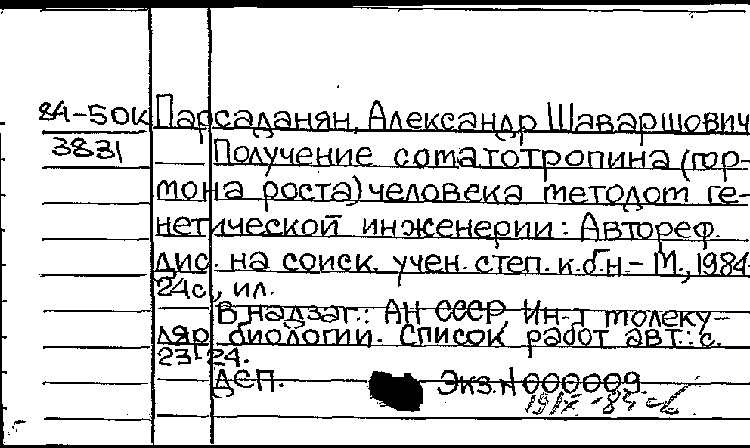 84-50К Парсаданян, Александр Шаваршович
3831 Получение соматотропина (гор-
мона роста) человека методом ге-
нетической инженерии: Автореф.
дис. на соиск. учен. степ. к.б.н.- М., 1984.
24с., ил.
В надзаг.: АН СССР, Ин-т молеку-
ляр. биологии. Список работ авт.: с.
23-24.
ДСП. Экз.N000009.